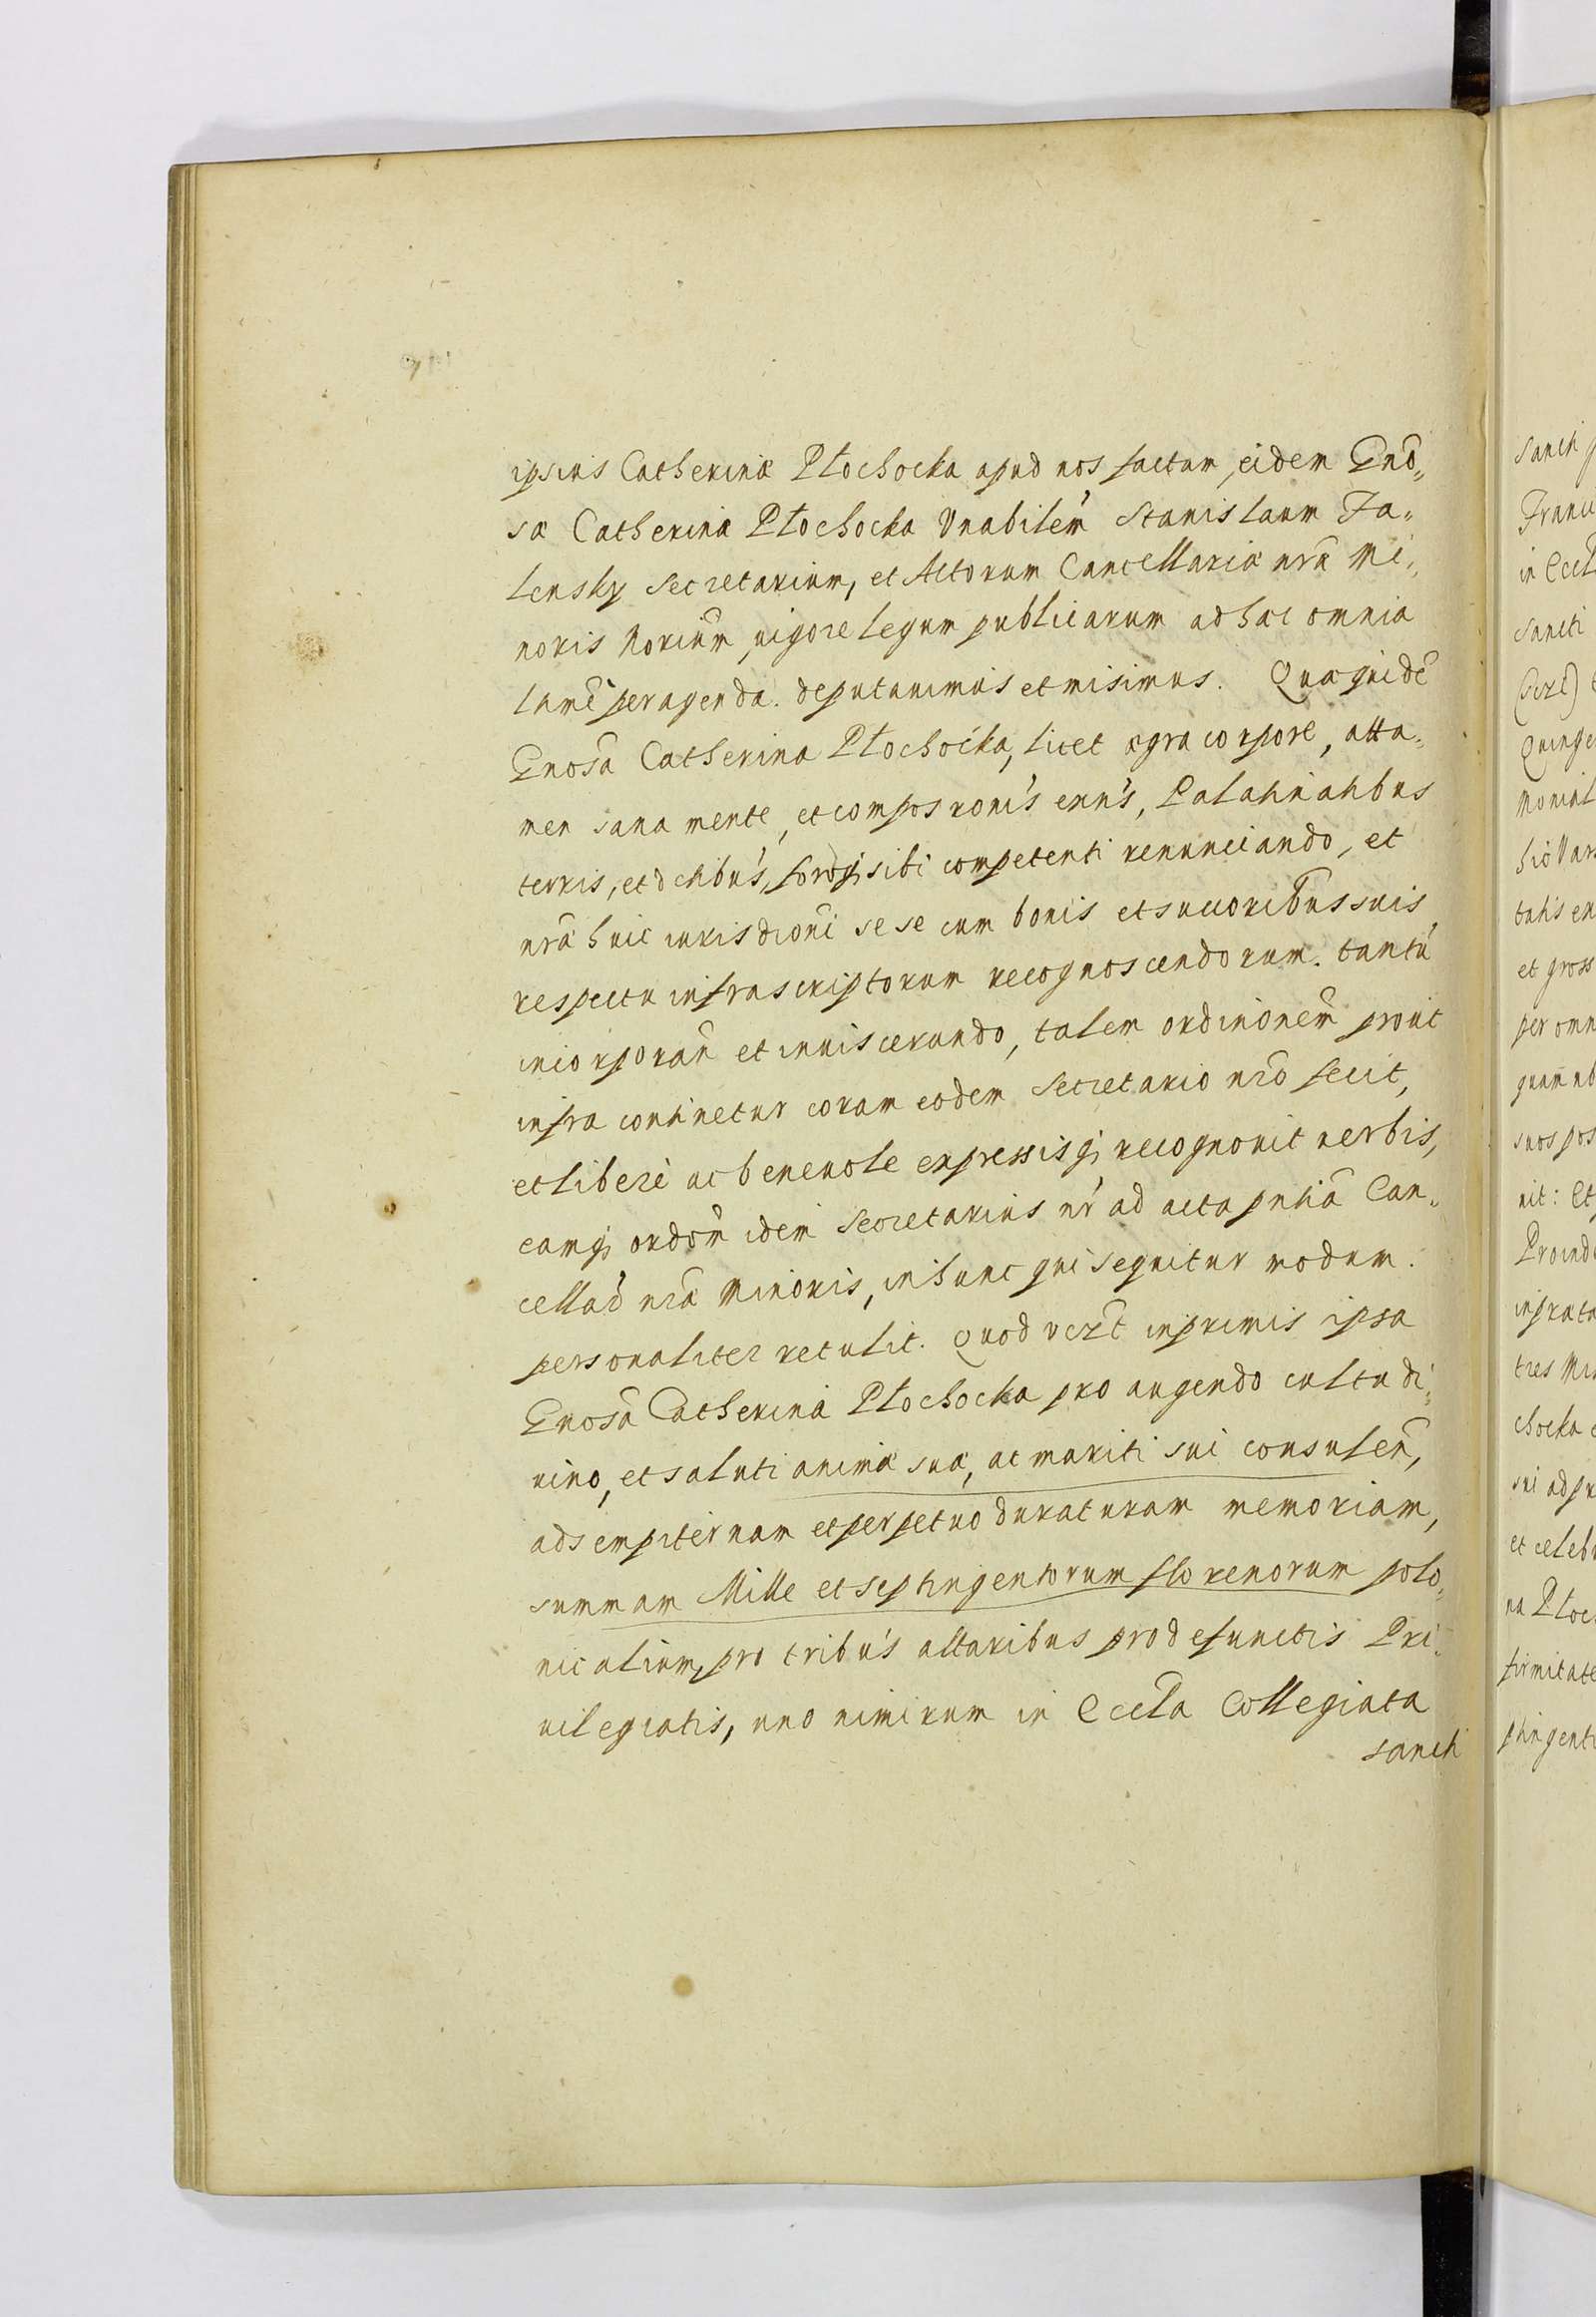 ipsius Catherinæ Płochocka apud nos factam, eidem Gnõ„
sæ Catherinæ Płochocka Vnabilem̃ Stanislaum Za„
lensky Secretarium, et Actorum Cancellariæ nr̃æ Mi„
noris Norium̃, uigore legum publicarum ad hæc omnia
peragenda. deputauimus et misimus. Quæ quidẽ
Gnosã Catherina Płochocka, licet ægra corpore, atta„
men sana mente, et compos ronis exns, Palatinatibus
terris, et dctibus, foroq; sibi competenti renunciando, et
nrã huic iurisdioni se se cum bonis et succoribus suis
respectu infrascriptorum recognoscendorum. tantũ
incorporañ et inuiscerando, talem ordinonem̃ prout
infra continetur coram eodem Secretario nrõ fecit,
et liberè ac beneuole expressisq; recognouit uerbis,
eamq; ordom̃ idem Secretarius nr̃ ad acta pntia Can„
cellar̃ nrã Minoris, in hunc qui sequitur modum.
personaliter retulit. Quod uert inprimis ipsa
Gnosã Catherina Płochocka pro augendo cultu di„
uino, et saluti animæ suæ, ac mariti sui consuleñ,
ad sempiternam et perpetuo duraturam memoriam,
summam Mille et septingentorum florenorum polo„
nicalium, pro tribus altaribus pro defunctis Pri„
uilegiatis, uno nimirum in Eccła Collegiata
sancti